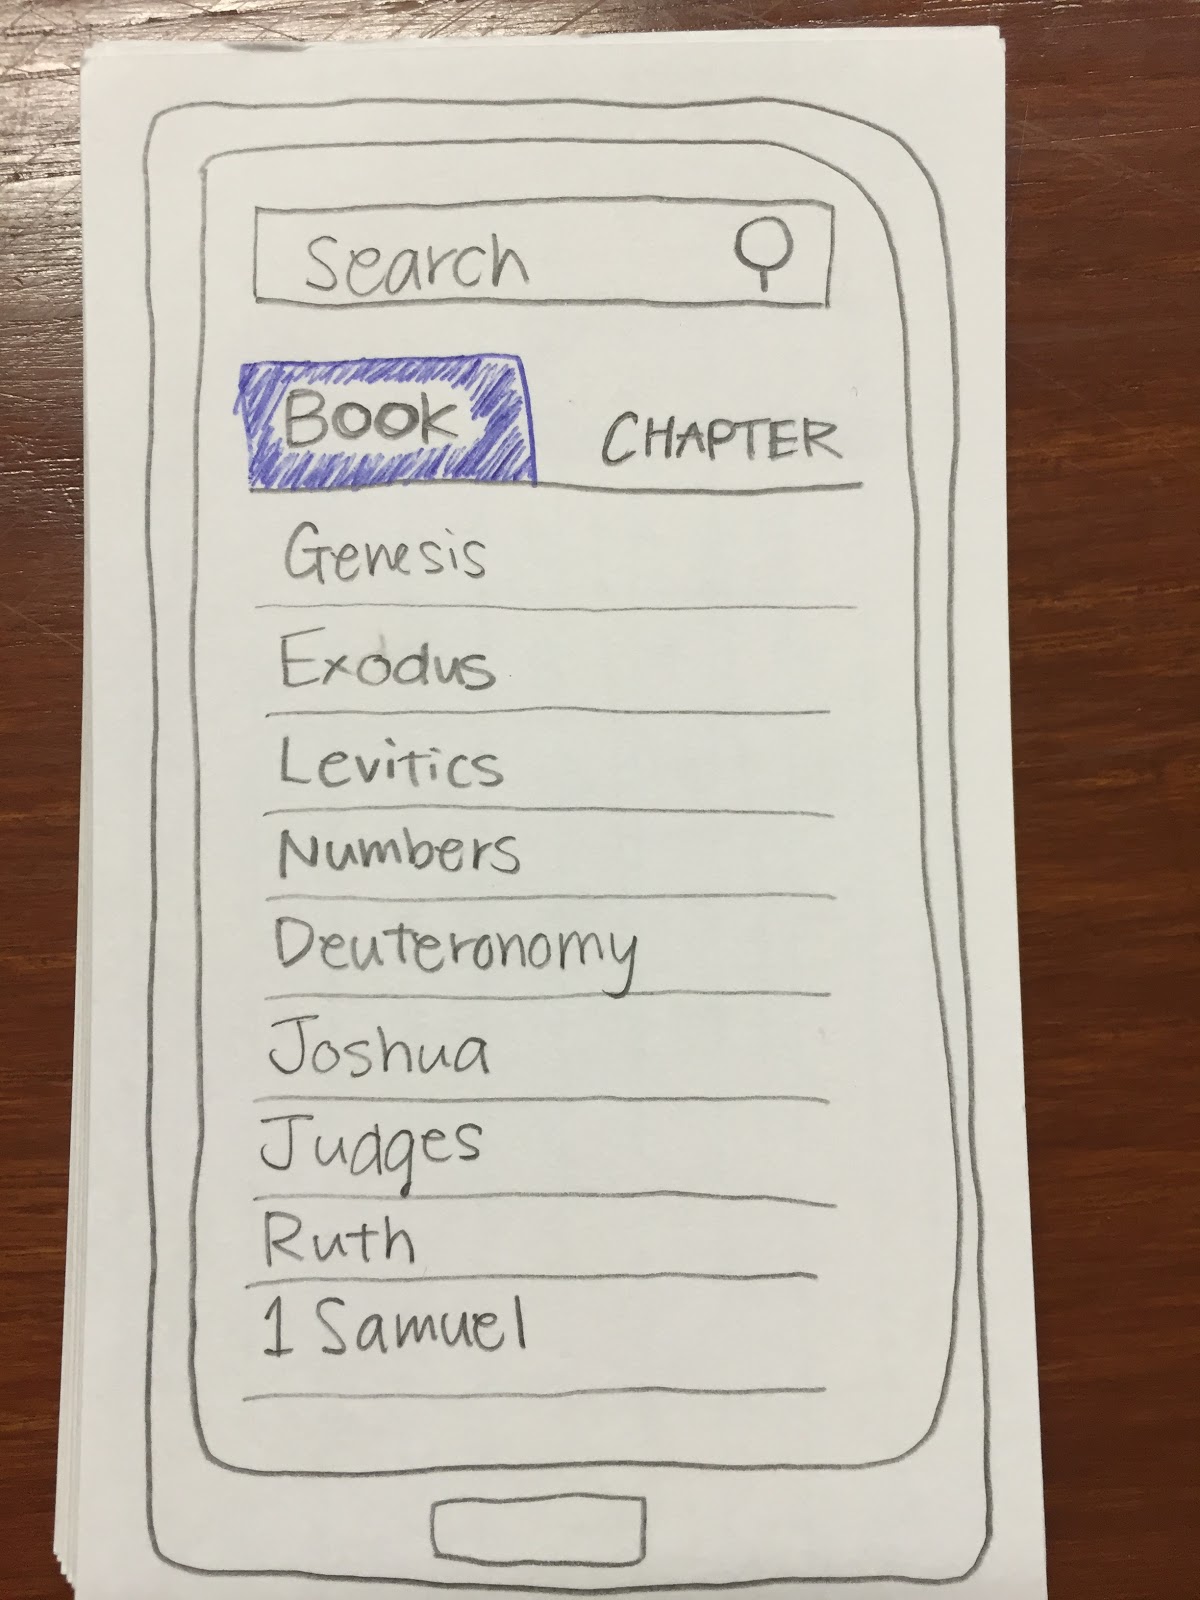 Search
Book CHAPTER
Genesis
Exodus
Levitics
Numbers
Deuteronomy
Joshua
Judges
Ruth
1 Samuel